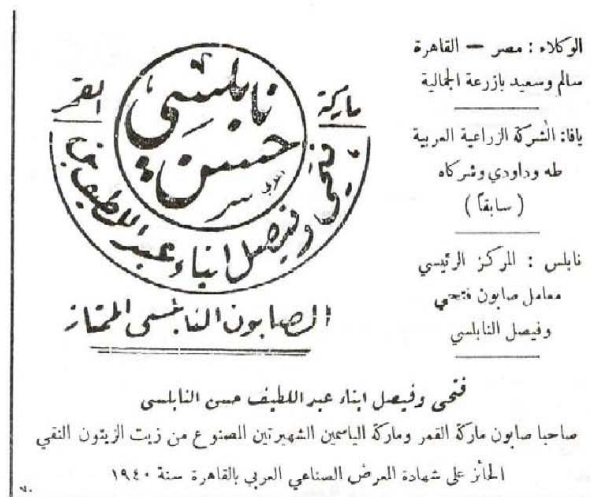 الوكلاء : مصر — القاهرة
سالم وسعيد بازرعة الجمالية
يافا: الشركة الزراعية العربية
طه وداودي وشركاه
( سابقاً )
نابلس : المركز الرئيسي
معامل صابون فتحي
وفيصل النابلسي
ماركة
القمر
نابلسي
حسن
فتحي وفيصل ابناء عبد اللطيف
الصابون النابلسي الممتاز
فتحي وفيصل ابناء عبد اللطيف حسن النابلسي
صاحبا صابون ماركة القمر وماركة الياسمين الشهيرتين المصنوع من زيت الزيتون النقي
الحائز على شهادة المعرض الصناعي العربي بالقاهرة سنة ١٩٤٠